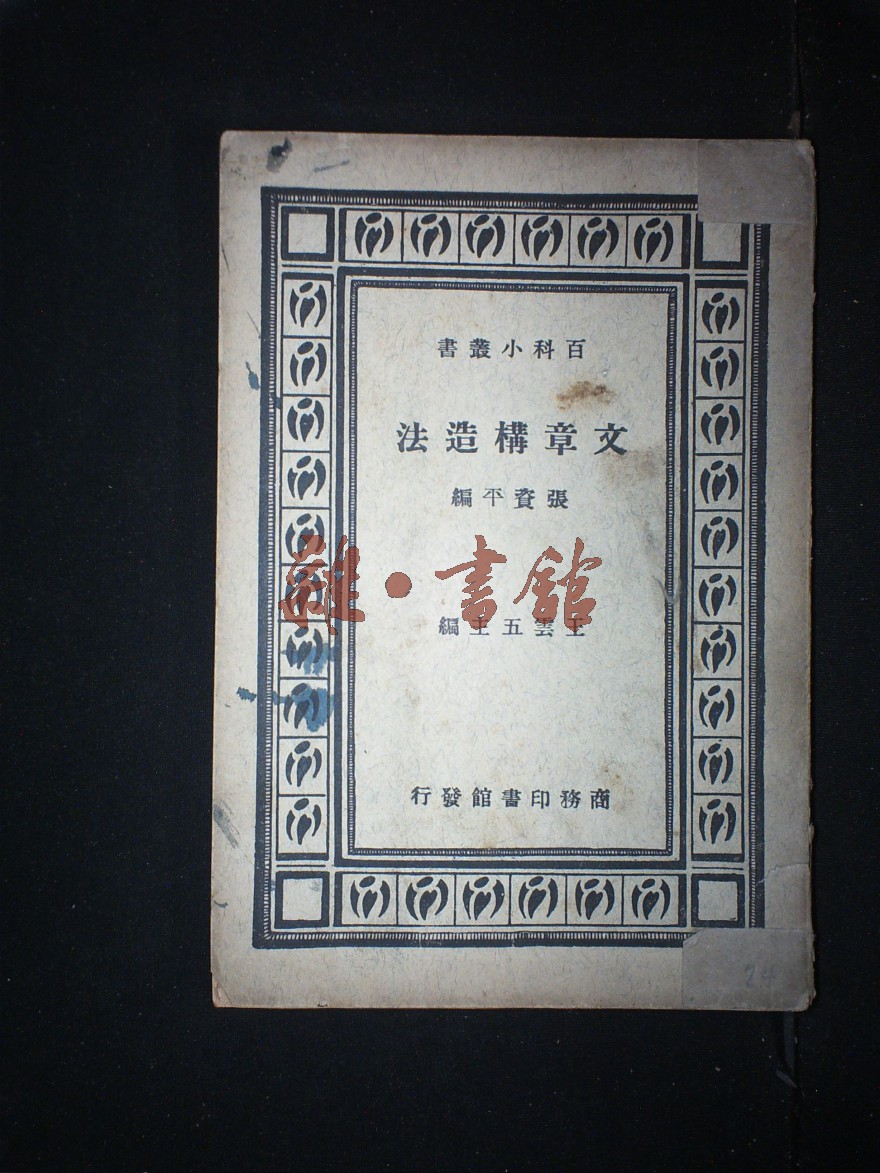 百科小叢書
文章構造法
張資平編
雜·書館
王雲五主編
商務印書館發行
24